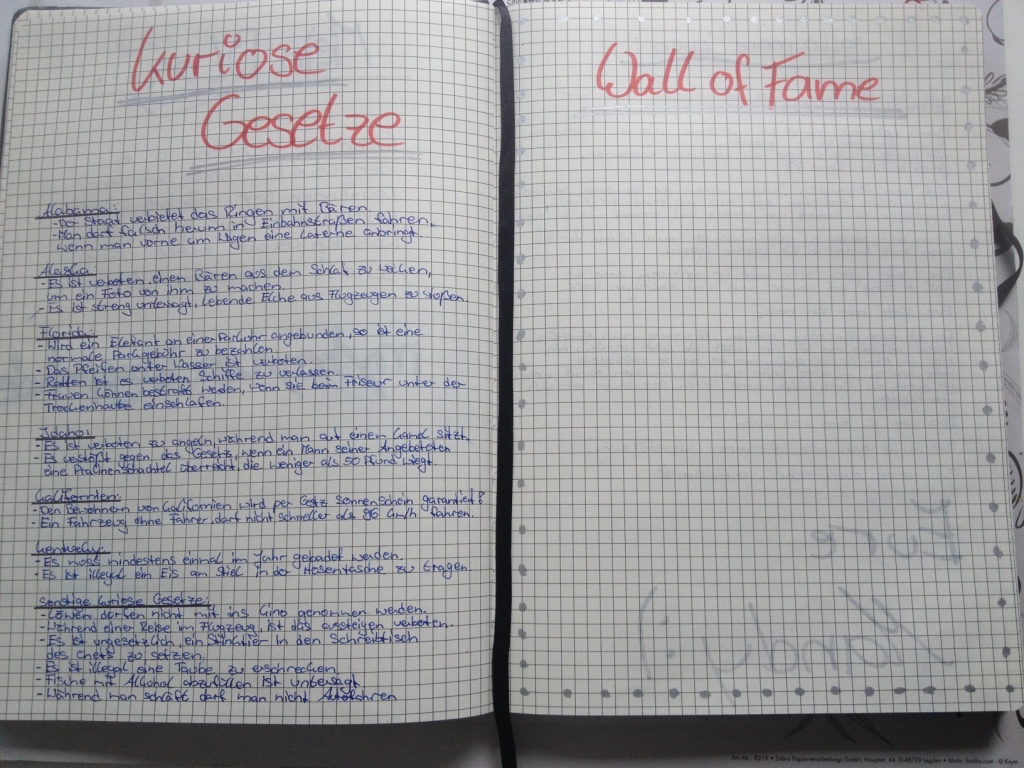 kuriose
Gesetze
Alabama:
-Der Staat verbietet das Ringen mit Bären.
-Man darf falsch herum in Einbahnstraßen fahren,
wenn man vorne am Wagen eine Laterne anbringt
Alaska
-Es ist verboten einen Bären aus dem Schlaf zu wecken,
um ein Foto von ihm zu machen.
- Es ist streng untersagt, lebende Elche aus Flugzeugen zu stoßen
Florida:
- Wird ein Elefant an einer Parkuhr angebunden, so ist eine
normale Parkgebühr zu bezahlen.
- Das Pfeifen unter Wasser ist verboten.
- Ratten ist es verboten Schiffe zu verlassen.
- Frauen können bestraft werden, wenn sie beim Friseur unter der
Trockenhaube einschlafen.
Idaho:
- Es ist verboten zu angeln, während man auf einem Kamel sitzt.
- Es verstößt gegen das Gesetz, wenn ein Mann seiner Angebeteten
eine Pralinenschachtel überreicht, die weniger als 50 Pfund wiegt.
Kalifornien:
- Den Bewohnern von Kalifornien wird per Gestz Sonnenschein garantiert?
- Ein Fahrzeug ohne Fahrer, darf nicht schneller als 96 km/h fahren.
Kentucky:
- Es muss mindestens einmal im Jahr gebadet werden.
- Es ist illegal ein Eis am Stiel in der Hosentasche zu tragen
sonstige kuriose Gesetze:
- Löwen dürfen nicht mit ins Kino genommen werden.
-Während einer Reise im Flugzeug, ist das aussteigen verboten.
- Es ist ungesetzlich, ein Stinktier in den Schreibtisch
des Chefs zu setzen
- Es ist illegal eine Taube zu erschrecken
- Fische mit Alkohol abzufüllen ist untersagt
- Während man schläft darf man nicht Autofahren
Wall of Fame
Eure
Mandy :)
Art.-Nr.: 8219 • Zebra Papierverarbeitungs GmbH, Hauptstr. 44, D-88739 • Motiv: fotolia.com - ©